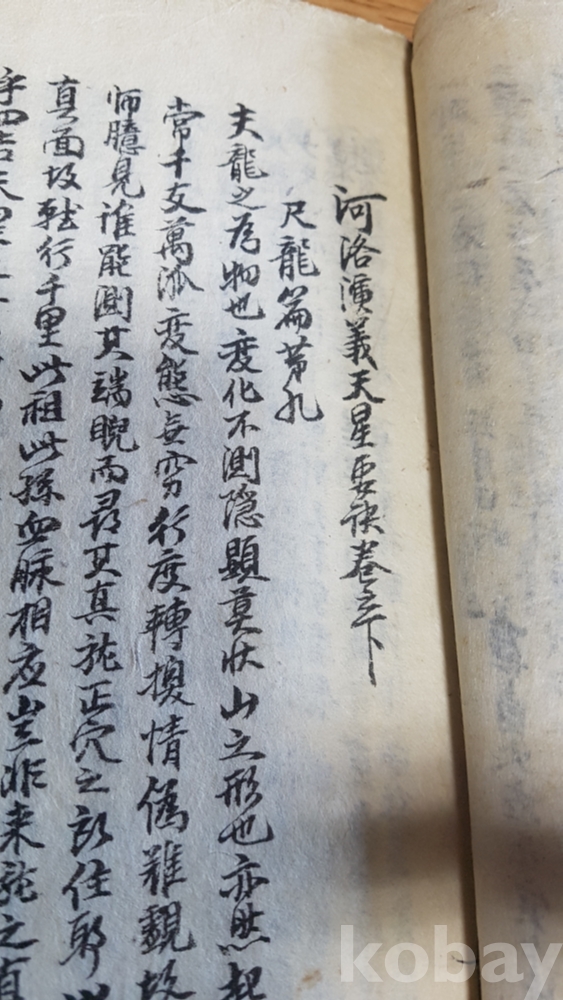 河洛演義天星要訣卷之下
尺龍篇第九
夫龍之爲物也變化不測隱顯莫狀山之形也亦然起
常千支萬派變態無窮行度轉換情僞難覩故
師臆見誰能測其端睨而尋其真龍正穴之所住耶
真面故軱行千里此祖此孫血脉相應豈非来龍之
kobay